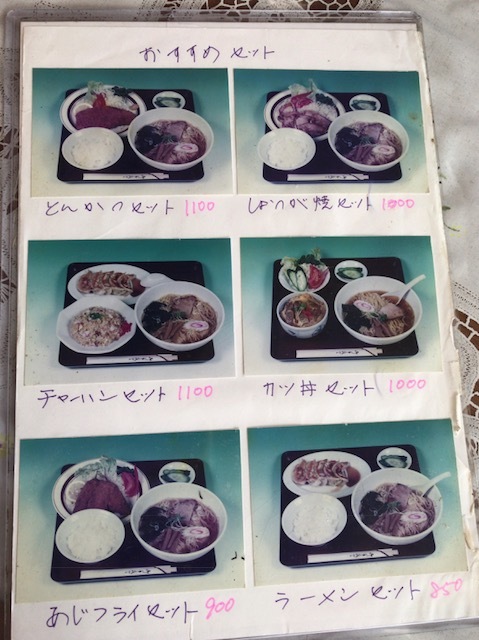 おすすめセット
とんかつセット 1100
しょうが焼セット 1000
チャーハンセット 1100
カツ丼セット 1000
あじフライセット 900
ラーメンセット 850